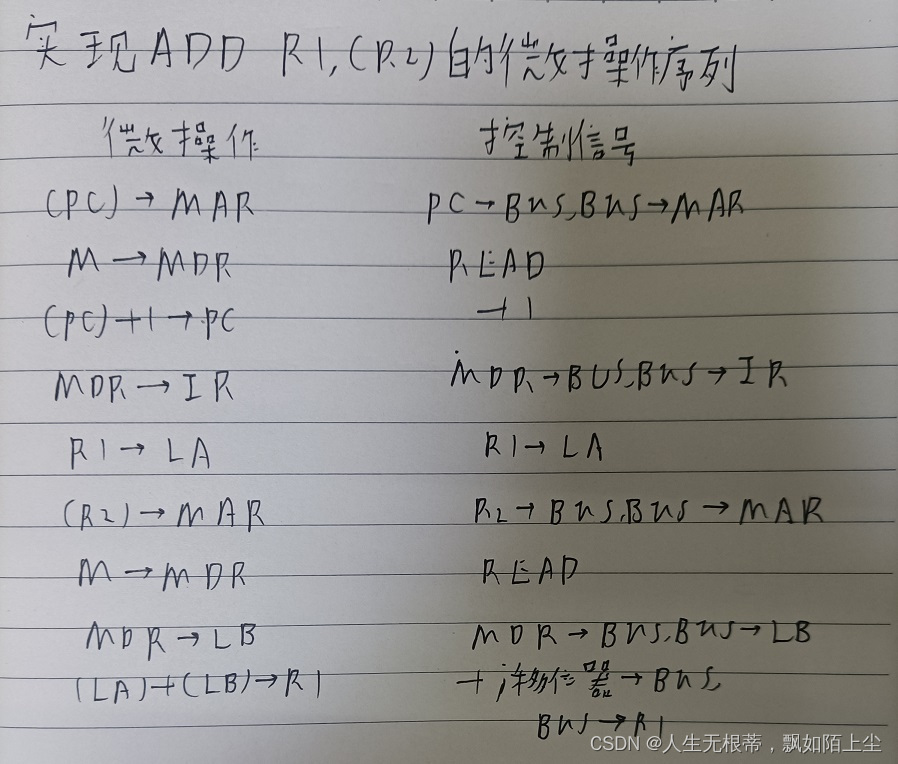 实现ADD R1,(R2)的微操作序列
微操作 控制信号
(PC)→MAR PC→BUS,BUS→MAR
M→MDR READ
(PC)+1→PC +1
MDR→IR MDR→BUS,BUS→IR
R1→LA R1→LA
(R2)→MAR R2→BUS,BUS→MAR
M→MDR READ
MDR→LB MDR→BUS,BUS→LB
(LA)+(LB)→R1 +,移位器→BUS,
BUS→R1
CSDN @人生无根蒂，飘如陌上尘